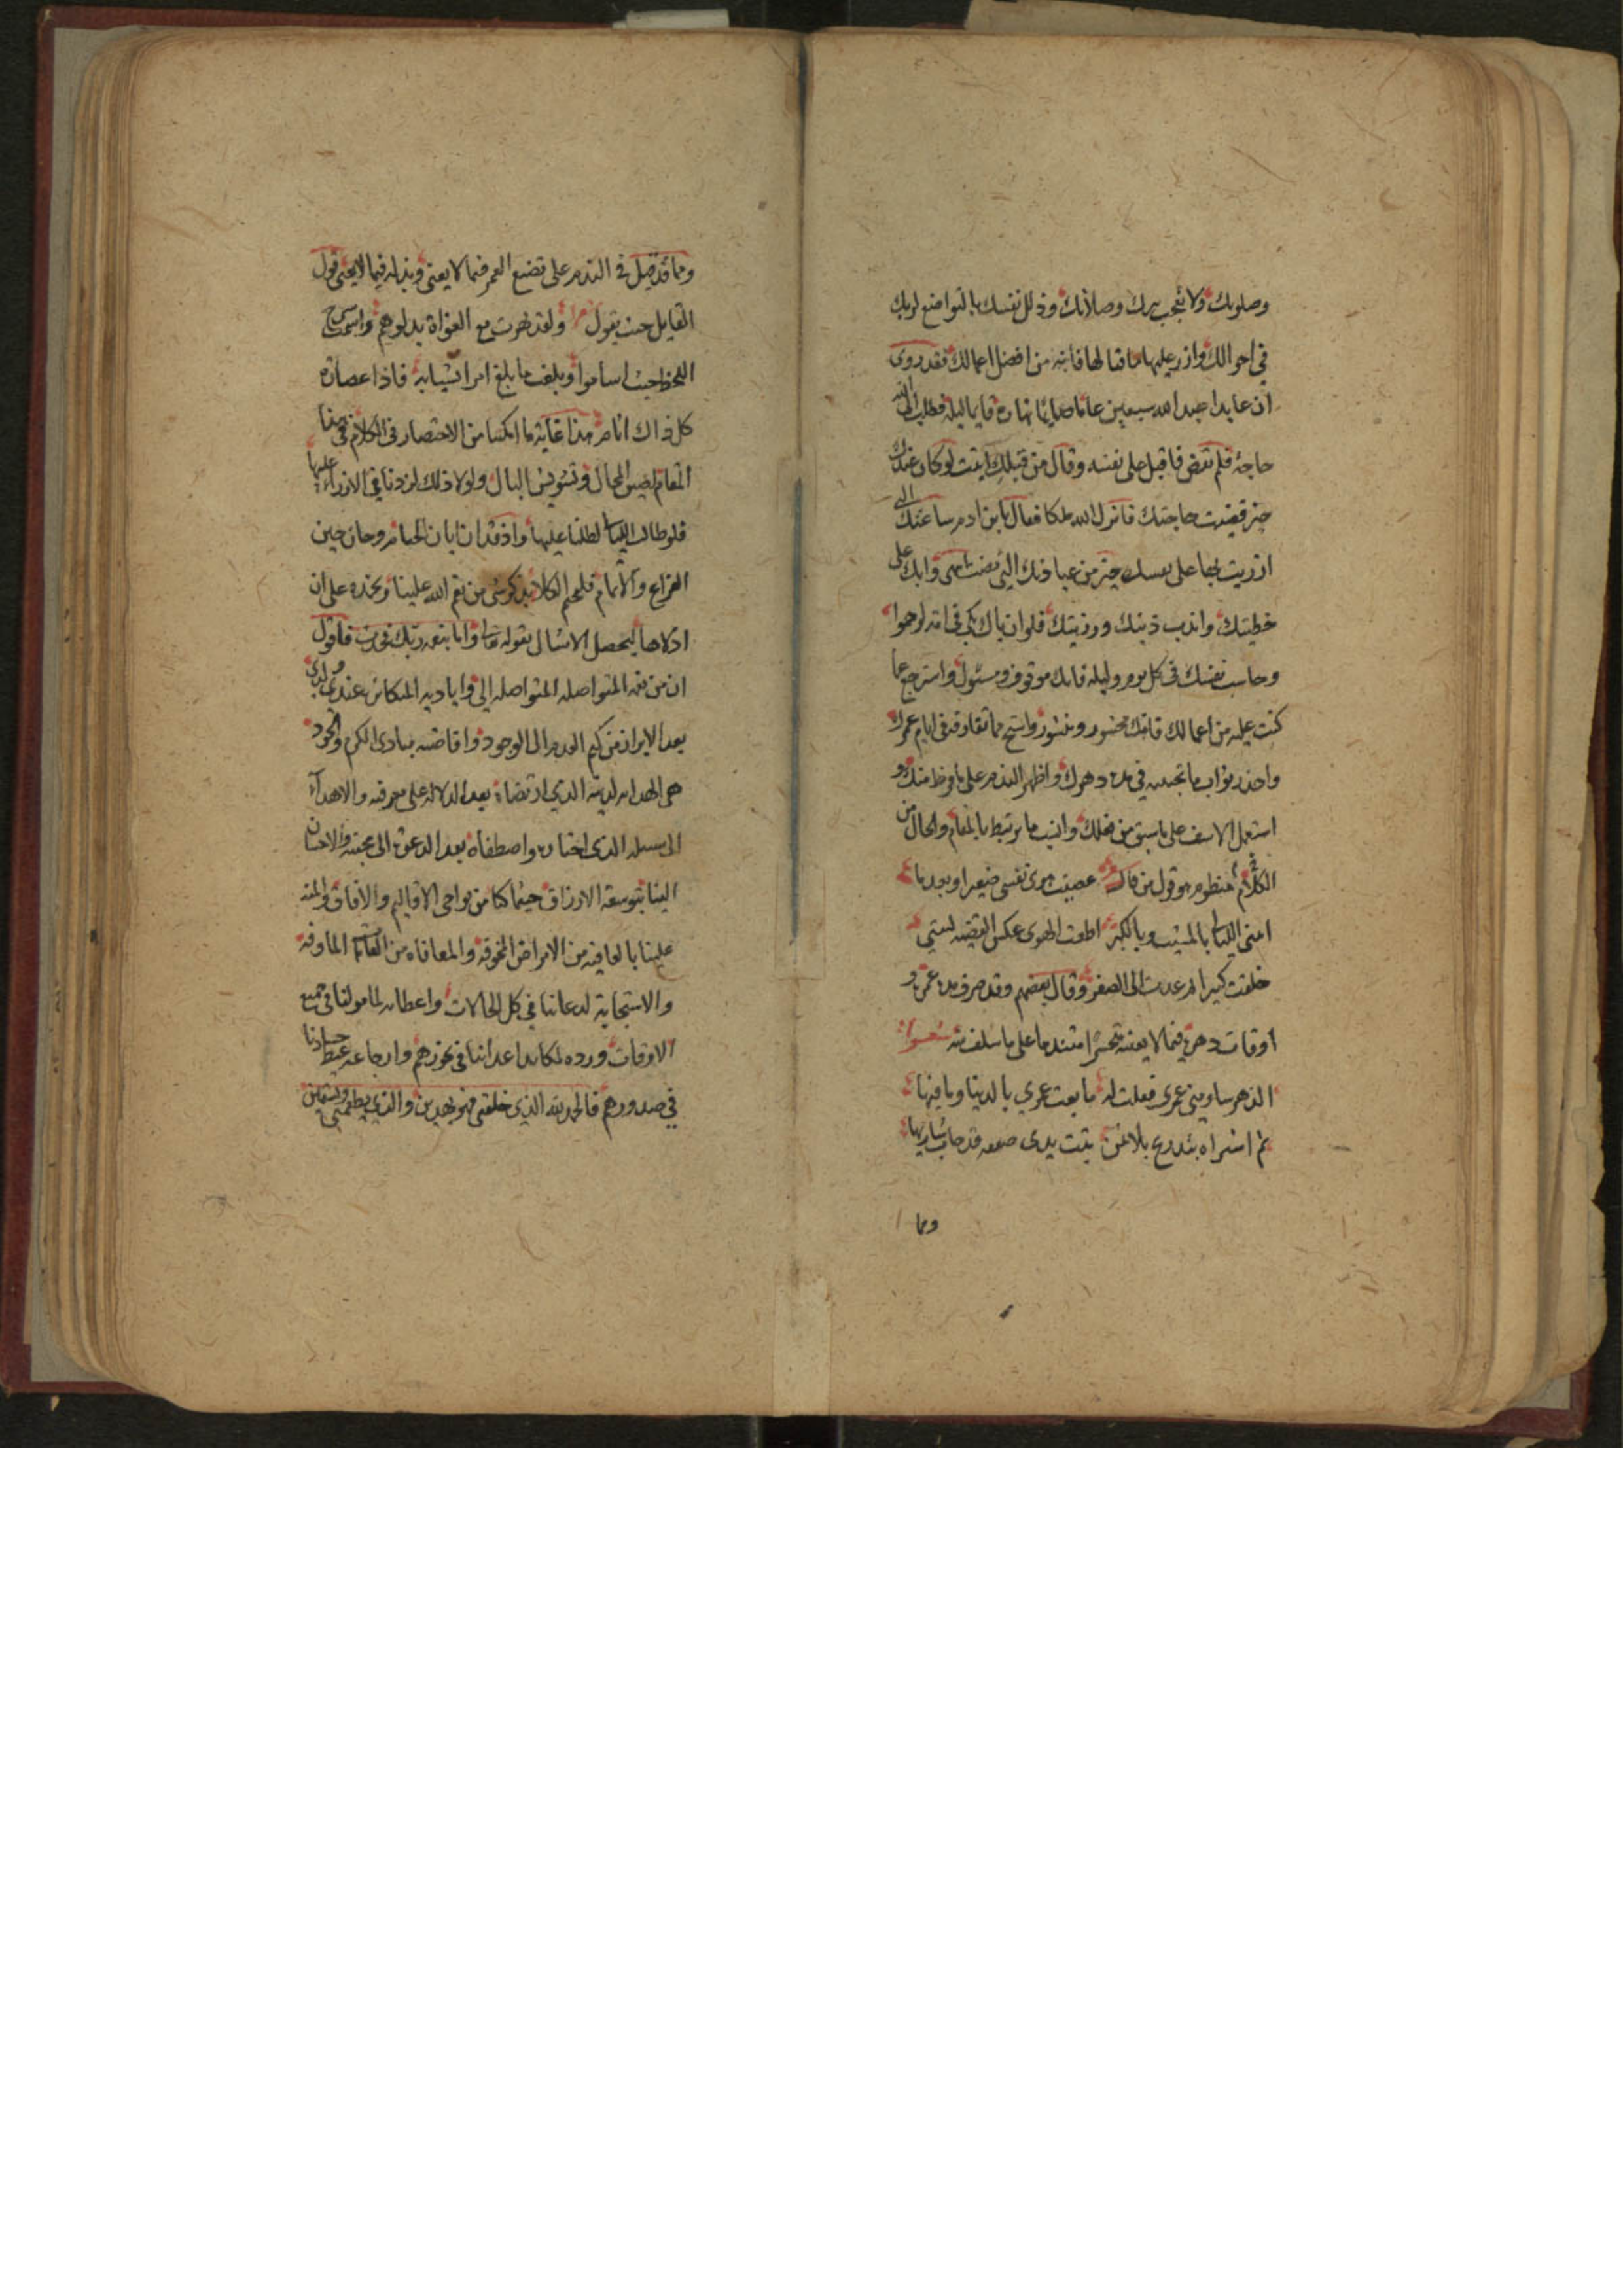 وصلوتك ولا تعجب ببرك وصلاتك وذلل نفسك بالتواضع لربك
في احوالك وازر عليها ما قتا لها فانه من افضل اعمالك فقد روى
ان عابدا عبد الله سبعين عاما صايما نهاره قايما ليله فطلب الى الله
حاجة فلم تقض فاقبل على نفسه وقال من قبلك اتيت لو كان عندك
خير قضيت حاجتك فانزل الله ملكا فقال يا بن ادم ساعتك التي
ازريت بها على نفسك خير من عبادتك التي مضت وابك على
خطيتك واندب ذنبك ورزيتك فلو ان باك بكى في امة لرحموا
وحاسب نفسك في كل يوم وليله فانك موقوف ومسئول واسترجع عما
كنت عليه من اعمالك فانك محشور ومنشور واستح مما تقارفه في ايام عمرك
واحذر ثواب ما تجنيه في مدة دهرك واظهر الندم على ما فرط منك و
استعمل الاسف على ما سبق من فعلك وانسب ما يرتبط بالمقام والحال من
الكلام المنظوم هو قول من قال عصيت هوى نفسي صغيرا وبعد ما
امتني الليالي بالمشيب وبالكبر اطعت الهوى عكس القضية ليتني
خلقت كبيرا ثم عدت الى الصغر وقال بعضهم وقد صرف مدة عمره و
اوقات دهره فيما لا يعنيه تحسرا متندما على ما سلف منه شعر
الدهر ساومني عمري فقلت له ما بعت عمري بالدنيا وما فيها
ثم اشتراه بتدريج بلا ثمن تبت يدى صفقه قد خاب شاريها
ومما
ومما قد قيل في الندم على تضييع العمر فيما لا يعنى وبذله فيما لا يجدى قول
القايل حيث يقول ولقد نهزت مع الغواة بدلوهم واسمت سرح
اللحظ حيث اساموا وبلغت ما بلغ امرا بشبابه فاذا عصارة
كل ذاك اثام هذا غاية ما امكننا من الاختصار في الكلام في هذا
المقام لضيق المجال وتشويش البال ولولا ذلك لزدنا في الازراء عليها
فلو طالت الليالي لطلنا عليها واذ قد ان ابان الختام وحان حين
الفراغ والاتمام فلنختم الكلام بذكر شى من نعم الله علينا ونحمده على ان
اولاها ليحصل الامتثال بقوله تعالى واما بنعمة ربك فحدث فاقول
ان من نعمه المتواصله المتواصله الي واياديه المتكاثره عندي ولدي
بعد الابراز من كتم العدم الى الوجود وافاضته مبادى الكرم والجود
هي الهدايه لدينه الذي ارتضاه بعد الدلاله على معرفته والاهدآء
الى سبيله الذى اختاره واصطفاه بعد الدعوة الى محبته والاحسان
الينا بتوسعة الارزاق حيثما كنا من نواحى الاقاليم والافاق والمنه
علينا بالعافيه من الامراض المخوفه والمعافاه من العاهات الماوفه
والاستجابة لدعائنا في كل الحالات واعطائه لمامولنا في جميع
الاوقات ورده لمكايد اعدائنا في نحورهم وارجاعه غيظ حسادنا
في صدورهم فالحمد لله الذي خلقني فهو يهدين والذي يطعمني ويسقين